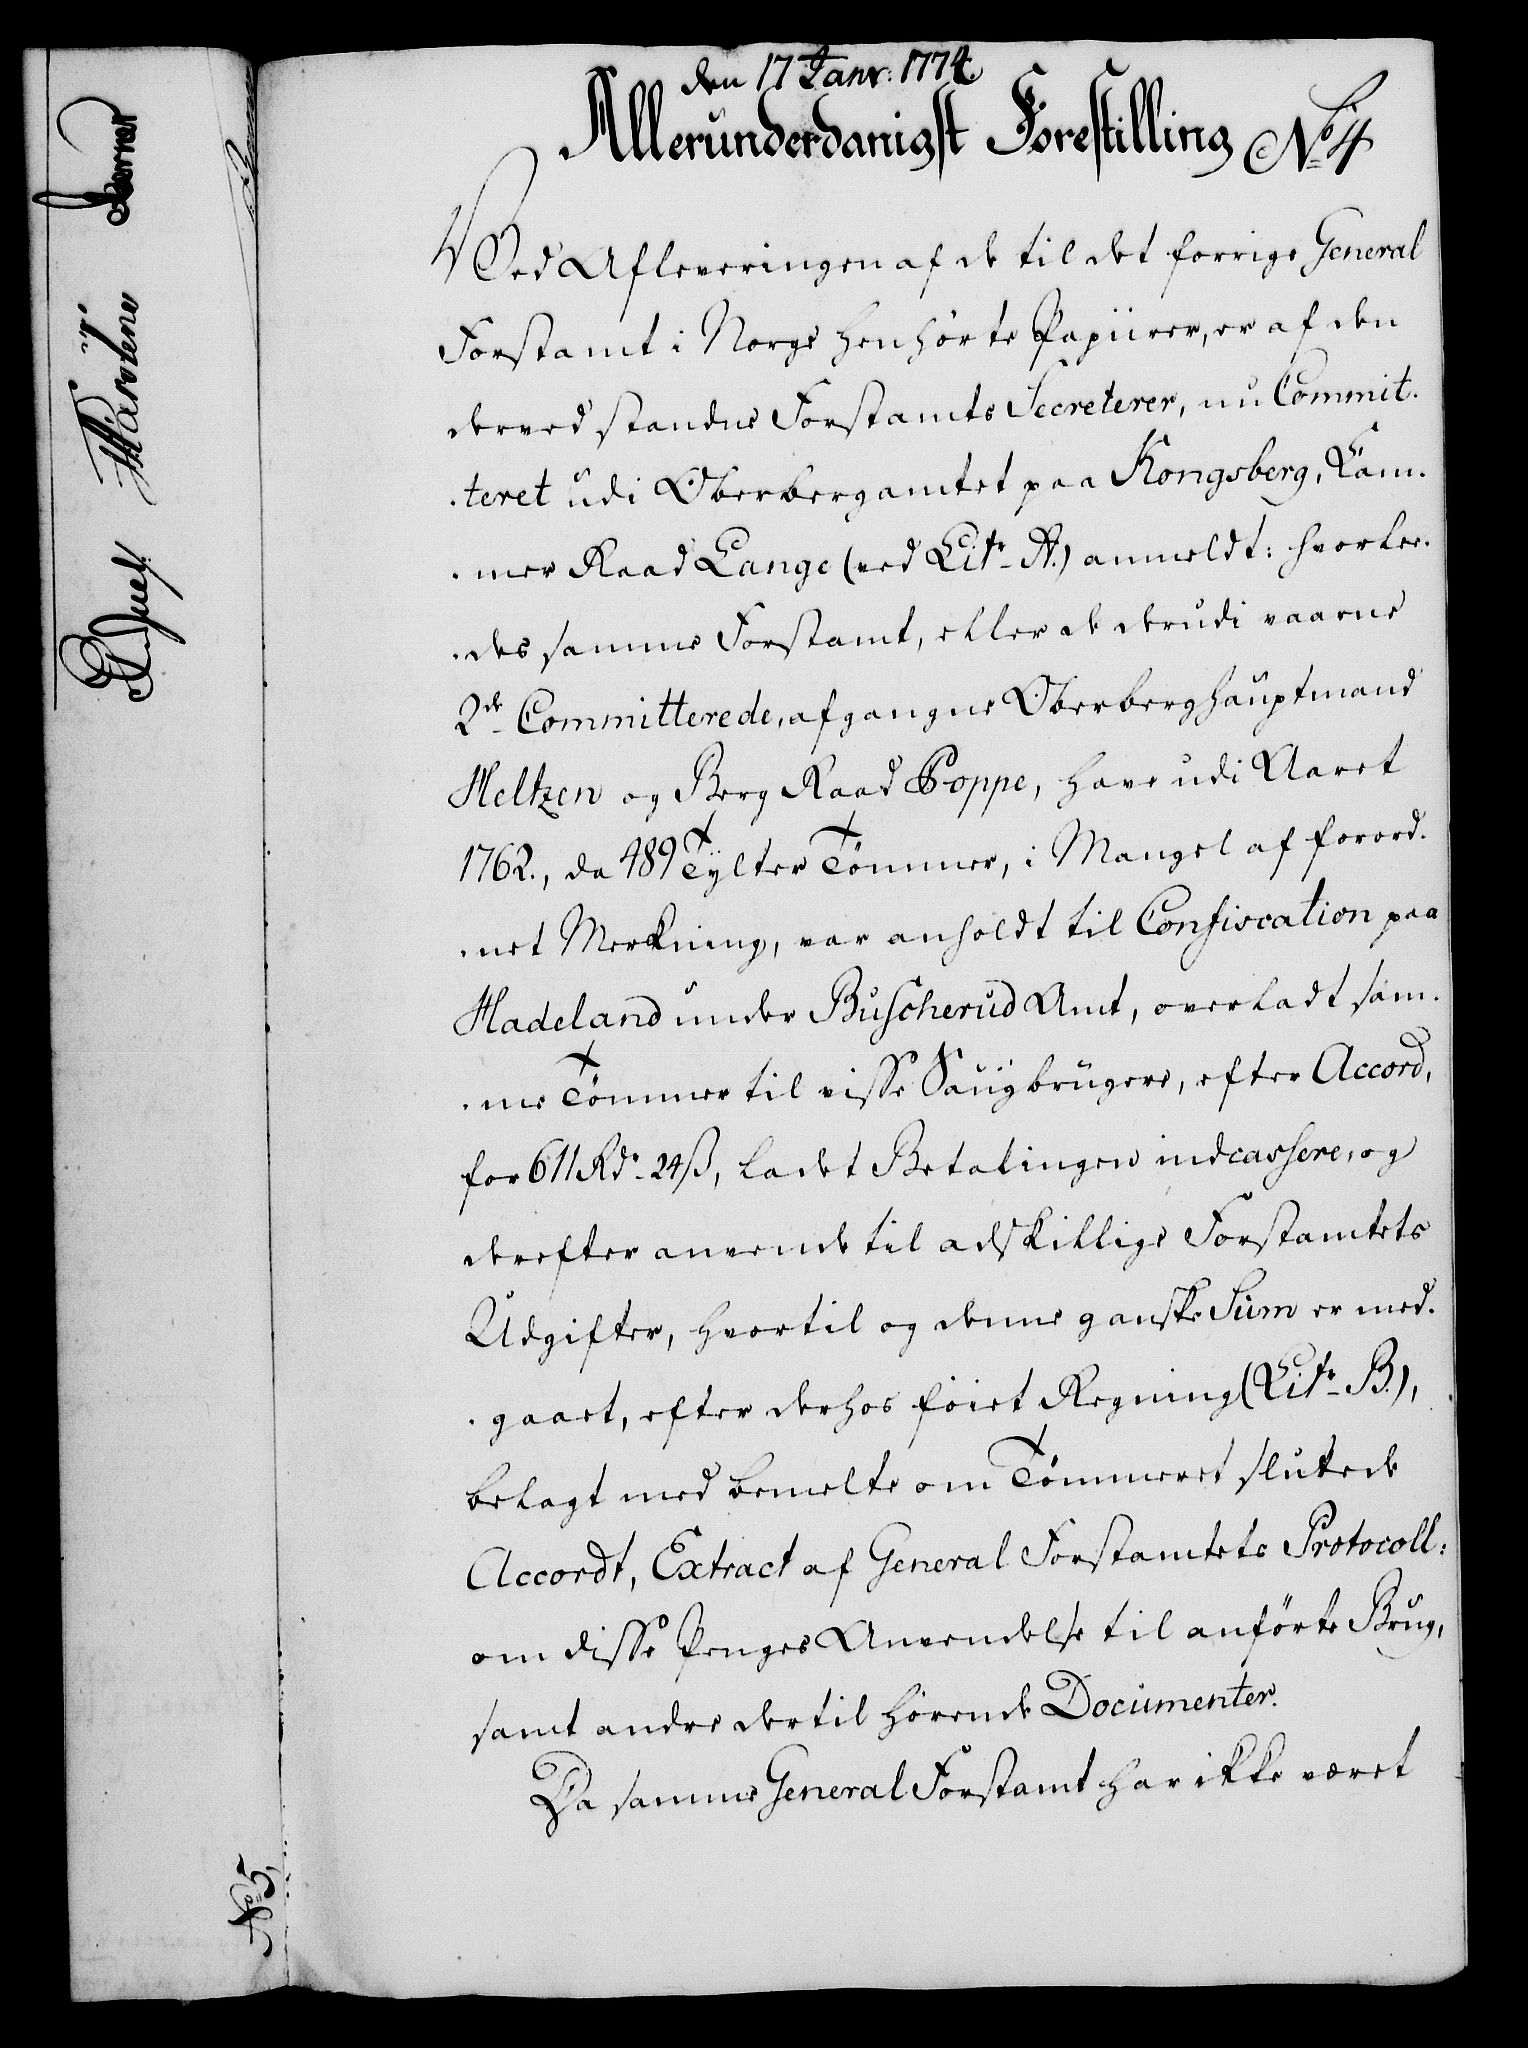 den 17 Janr: 1774.
Allerunderdanigst Forestilling No 4
Ved Afleveringen af de til det forrige General
Forstamt i Norge henhörte Papiirer, er af den
derved standne Forstamts Secreterer, nu Commit-
-teret udi Oberbergamtet paa Kongsberg, Cam-
-mer Raad Lange (ved Litr A.) anmeldt: hvorle-
-des samme Forstamt, eller de derudi vaarne
2de Committerede, afgangne Oberberghauptmand
Heltzen og Berg Raad Poppe, have udi Aaret
1762., da 489 Tylter Tömmer, i Mangel af forord-
-net Merkning, var anholdt til Confiscation paa
Hadeland under Buscherud Amt, overladt sam-
-me Tömmer til visse Saugbrugere, efter Accord,
for 611 Rdr 24 ß, ladet Betalingen indcassere, og
derefter anvende til adskillige Forstamtets
Udgifter, hvortil og denne ganske Sum er med-
-gaaet, efter derhos föiet Regning (Litr B.),
belagt med bemelte om Tömmeret sluttede
Accordt, Extract af General Forstamtets Protocoll:
om disse Penges Anvendelse til anförte Brug,
samt andre dertil hörende Documenter.
Da samme General Forstamt har ikke været
No 5